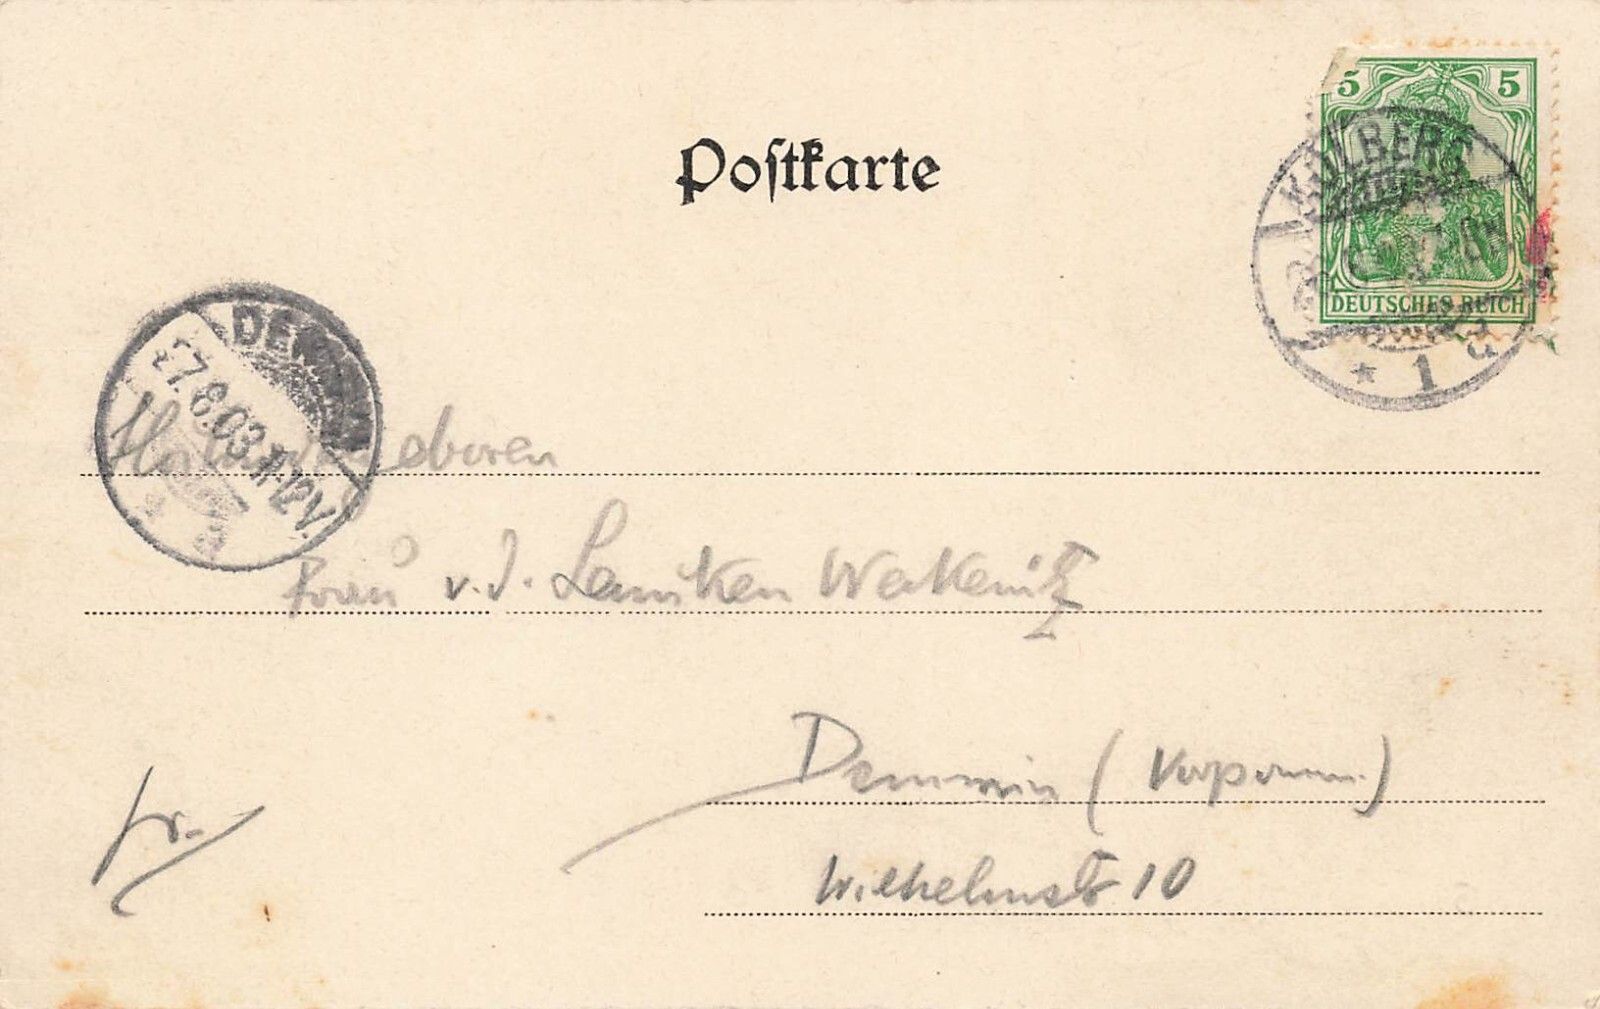 Postkarte
5 5
DEUTSCHES REICH
KOLBERG
* 1 a
DEMMIN
27.8.03.11-12V.
Hochwohlgeboren
Frau v. d. Lancken Wakenitz
Demmin (Vorpomm.)
Wilhelmstr 10
fr.